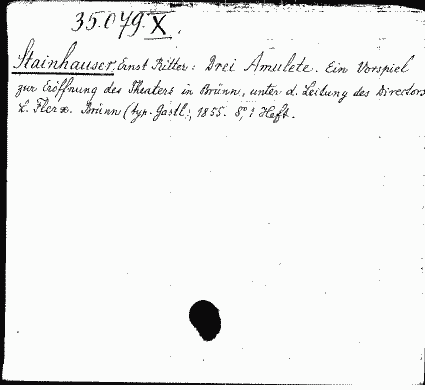 35.079.X.
Stainhauser, Ernst Ritter: Drei Amulete. Ein Vorspiel
zur Eröffnung des Theaters in Brünn, unter d. Leitung des Directors
Brünn (typ. Gastl.), 1855. 8°, 1 Heft.